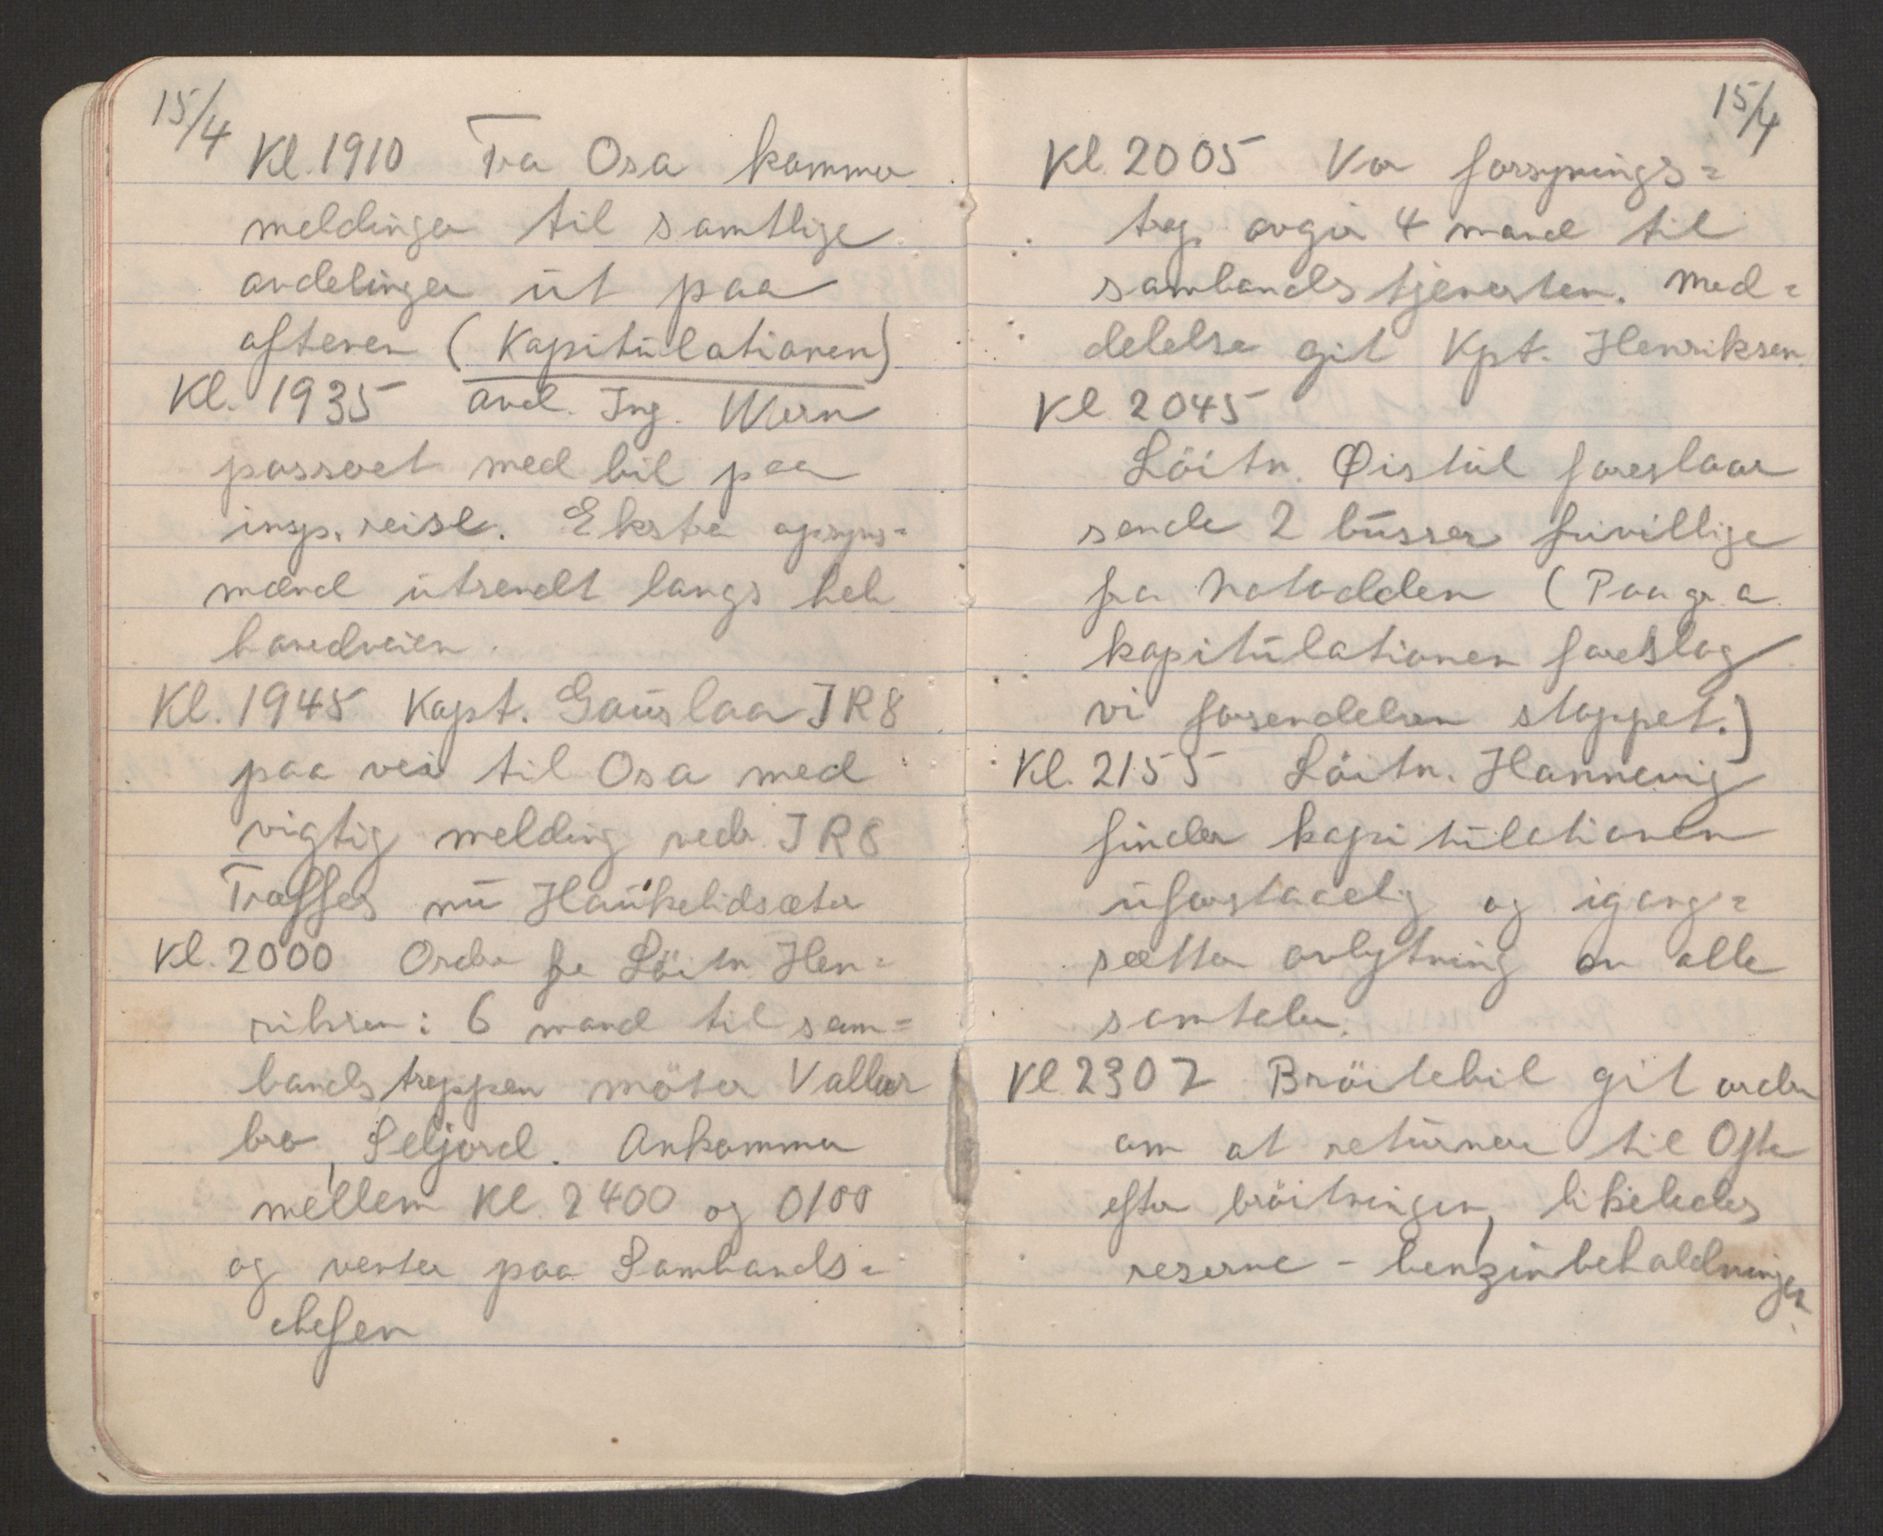 15/4
Kl. 1910 Fra Osa kommer
meldinger til samtlige
avdelinger ut paa
aftenen (Kapitulationen)
Kl. 1935 avd. Ing. Wern
passert med bil paa
insp. reise. Ekstra opsyns=
mænd utsendt langs hele
hovedveien.
Kl. 1945 Kapt. Gauslaa IR8
paa vei til Osa med
vigtig melding vedr. IR8
Træffes nu Haukelidsæter
Kl. 2000 Ordre fra Löitn. Hen=
riksen: 6 mand til sam=
bandstroppen möter Vallar
bro, Seljord. Ankommer
mellem Kl. 2400 og 0100
og venter paa Sambands=
chefen
15/4
Kl. 2005 Vor forsynings=
trop avgir 4 mand til
sambandstjenesten. Med=
delelse git Kpt. Henriksen.
Kl. 2045
Löitn. Øistul foreslaar
sende 2 busser frivillige
fra Notodden (Paa gr. a
kapitulationen foreslog
vi forsendelsen stoppet.)
Kl. 2155 Löitn. Hannevig
finder kapitulationen
uforstaaelig og igang=
sætter avlytning av alle
samtaler.
Kl 2307 Bröitebil git ordre
om at returnere til Ofte
efter bröitningen, likeledes
reserve-benzinbeholdningen.